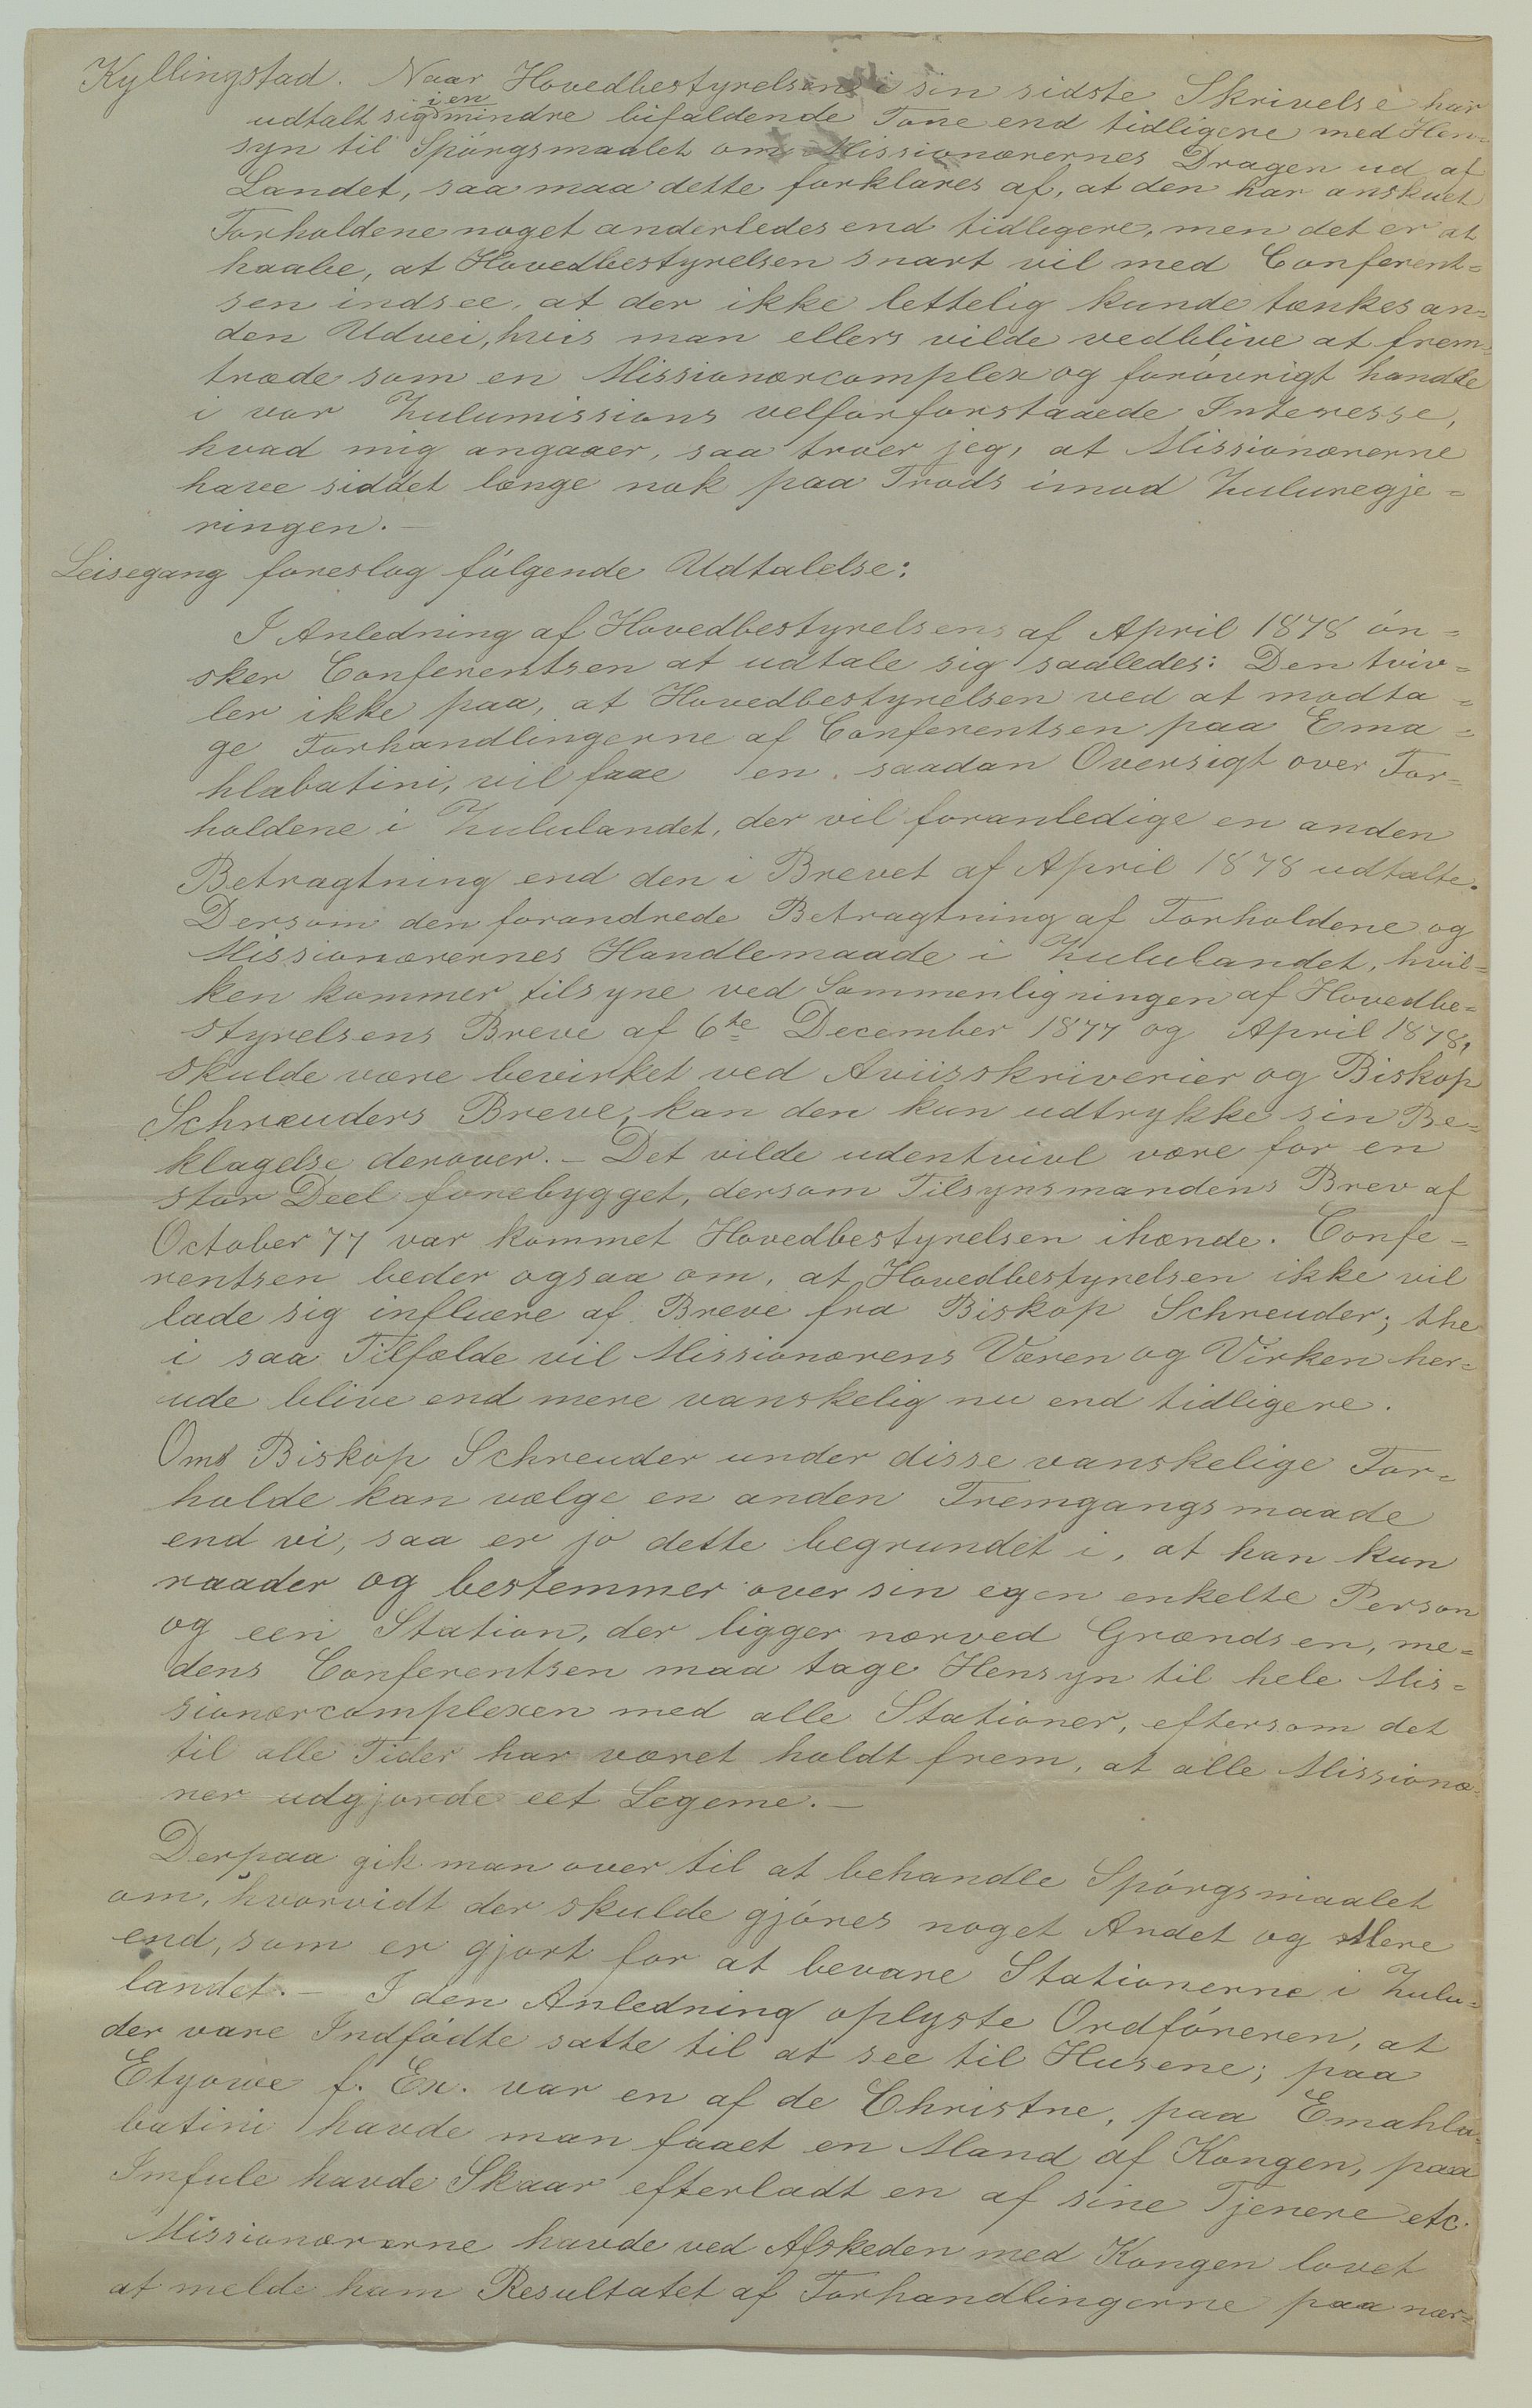 Kyllingstad. Naar Hovedbestyrelsen i sin sidste Skrivelse har
udtalt sig i en mindre bifaldende Tone end tidligere med Hen-
syn til Spórgsmaalet om Missionærernes Dragen ud af
Landet, saa maa dette forklares af, at den har anskuet
Forholdene noget anderledes end tidligere, men det er at
haabe, at Hovedbestyrelsen snart vil med Conferent=
sen indsee, at der ikke lettelig kunde tænkes an=
den Udvei, hvis man ellers vilde vedblive at frem=
træde som en Missionærcomplex og foróvrigt handle
i vor Zulumissions velforforstaaede Interesse,
hvad mig angaaer, saa troer jeg, at Missionærerne
have siddet længe nok paa Trods imod Zuluregje=
ringen. —
Leisegang foreslog fólgende Udtalelse:
I Anledning af Hovedbestyrelsens af April 1878 ón=
sker Conferentsen at udtale sig saaledes: Den tviv=
ler ikke paa, at Hovedbestyrelsen ved at modta=
ge Forhandlingerne af Conferentsen paa Ema=
hlabatini, vil faae en saadan Oversigt over For=
holdene i Zululandet, der vil foranledige en anden
Betragtning end den i Brevet af April 1878 udtalte.
Dersom den forandrede Betragtning af Forholdene og
Missionærernes Handlemaade i Zululandet, hvil=
ken kommer tilsyne ved Sammenligningen af Hovedbe=
styrelsens Breve af 6te December 1877 og April 1878,
skulde være bevirket ved Aviisskriverier og Biskop
Schreuders Breve, kan den kun udtrykke sin Be=
klagelse derover. — Det vilde udentvivl være for en
stor Deel forebygget, dersom Tilsynsmandens Brev af
October 77 var kommet Hovedbestyrelsen ihænde. Confe=
rentsen beder ogsaa om, at Hovedbestyrelsen ikke vil
lade sig influere af Breve fra Biskop Schreuder; thi
i saa Tilfælde vil Missionærens Væren og Virken her=
ude blive end mere vanskelig nu end tidligere.
Om Biskop Schreuder under disse vanskelige For=
holde kan vælge en anden Fremgangsmaade
end vi, saa er jo dette begrundet i, at han kun
raader og bestemmer over sin egen enkelte Person
og een Station, der ligger nærved Grændsen, me=
dens Conferentsen maa tage Hensyn til hele Mis=
sionærcomplexen med alle Stationer, eftersom det
til alle Tider har været holdt frem, at alle Missionæ=
rer udgjorde eet Legeme. —
Derpaa gik man over til at behandle Spórgsmaalet
om, hvorvidt der skulde gjóres noget Andet og Mere
end, som er gjort for at bevare Stationerne i Zulu=
landet. — I den Anledning oplyste Ordfóreren, at
der vare Indfódte satte til at see til Husene; paa
Etyowe f. Ex. var en af de Christne, paa Emahla=
batini havde man faaet en Mand af Kongen, paa
Imfule havde Skaar efterladt en af sine Tjenere etc.
Missionærerne havde ved Afskeden med Kongen lovet
at melde ham Resultatet af Forhandlingerne paa nær=